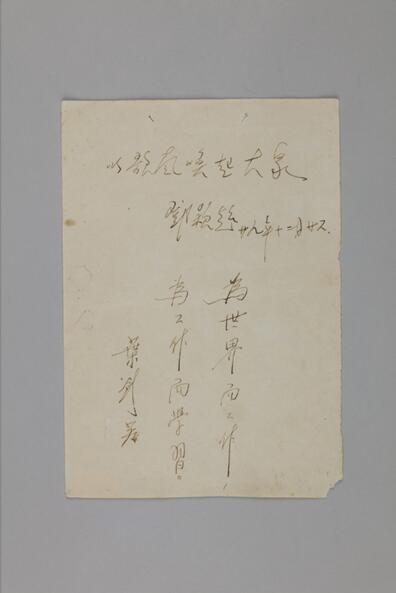 以歌声喚起大众
鄧颖超 廿九年十二月廿六.
為世界而工作!
為工作而學習。
葉剑英